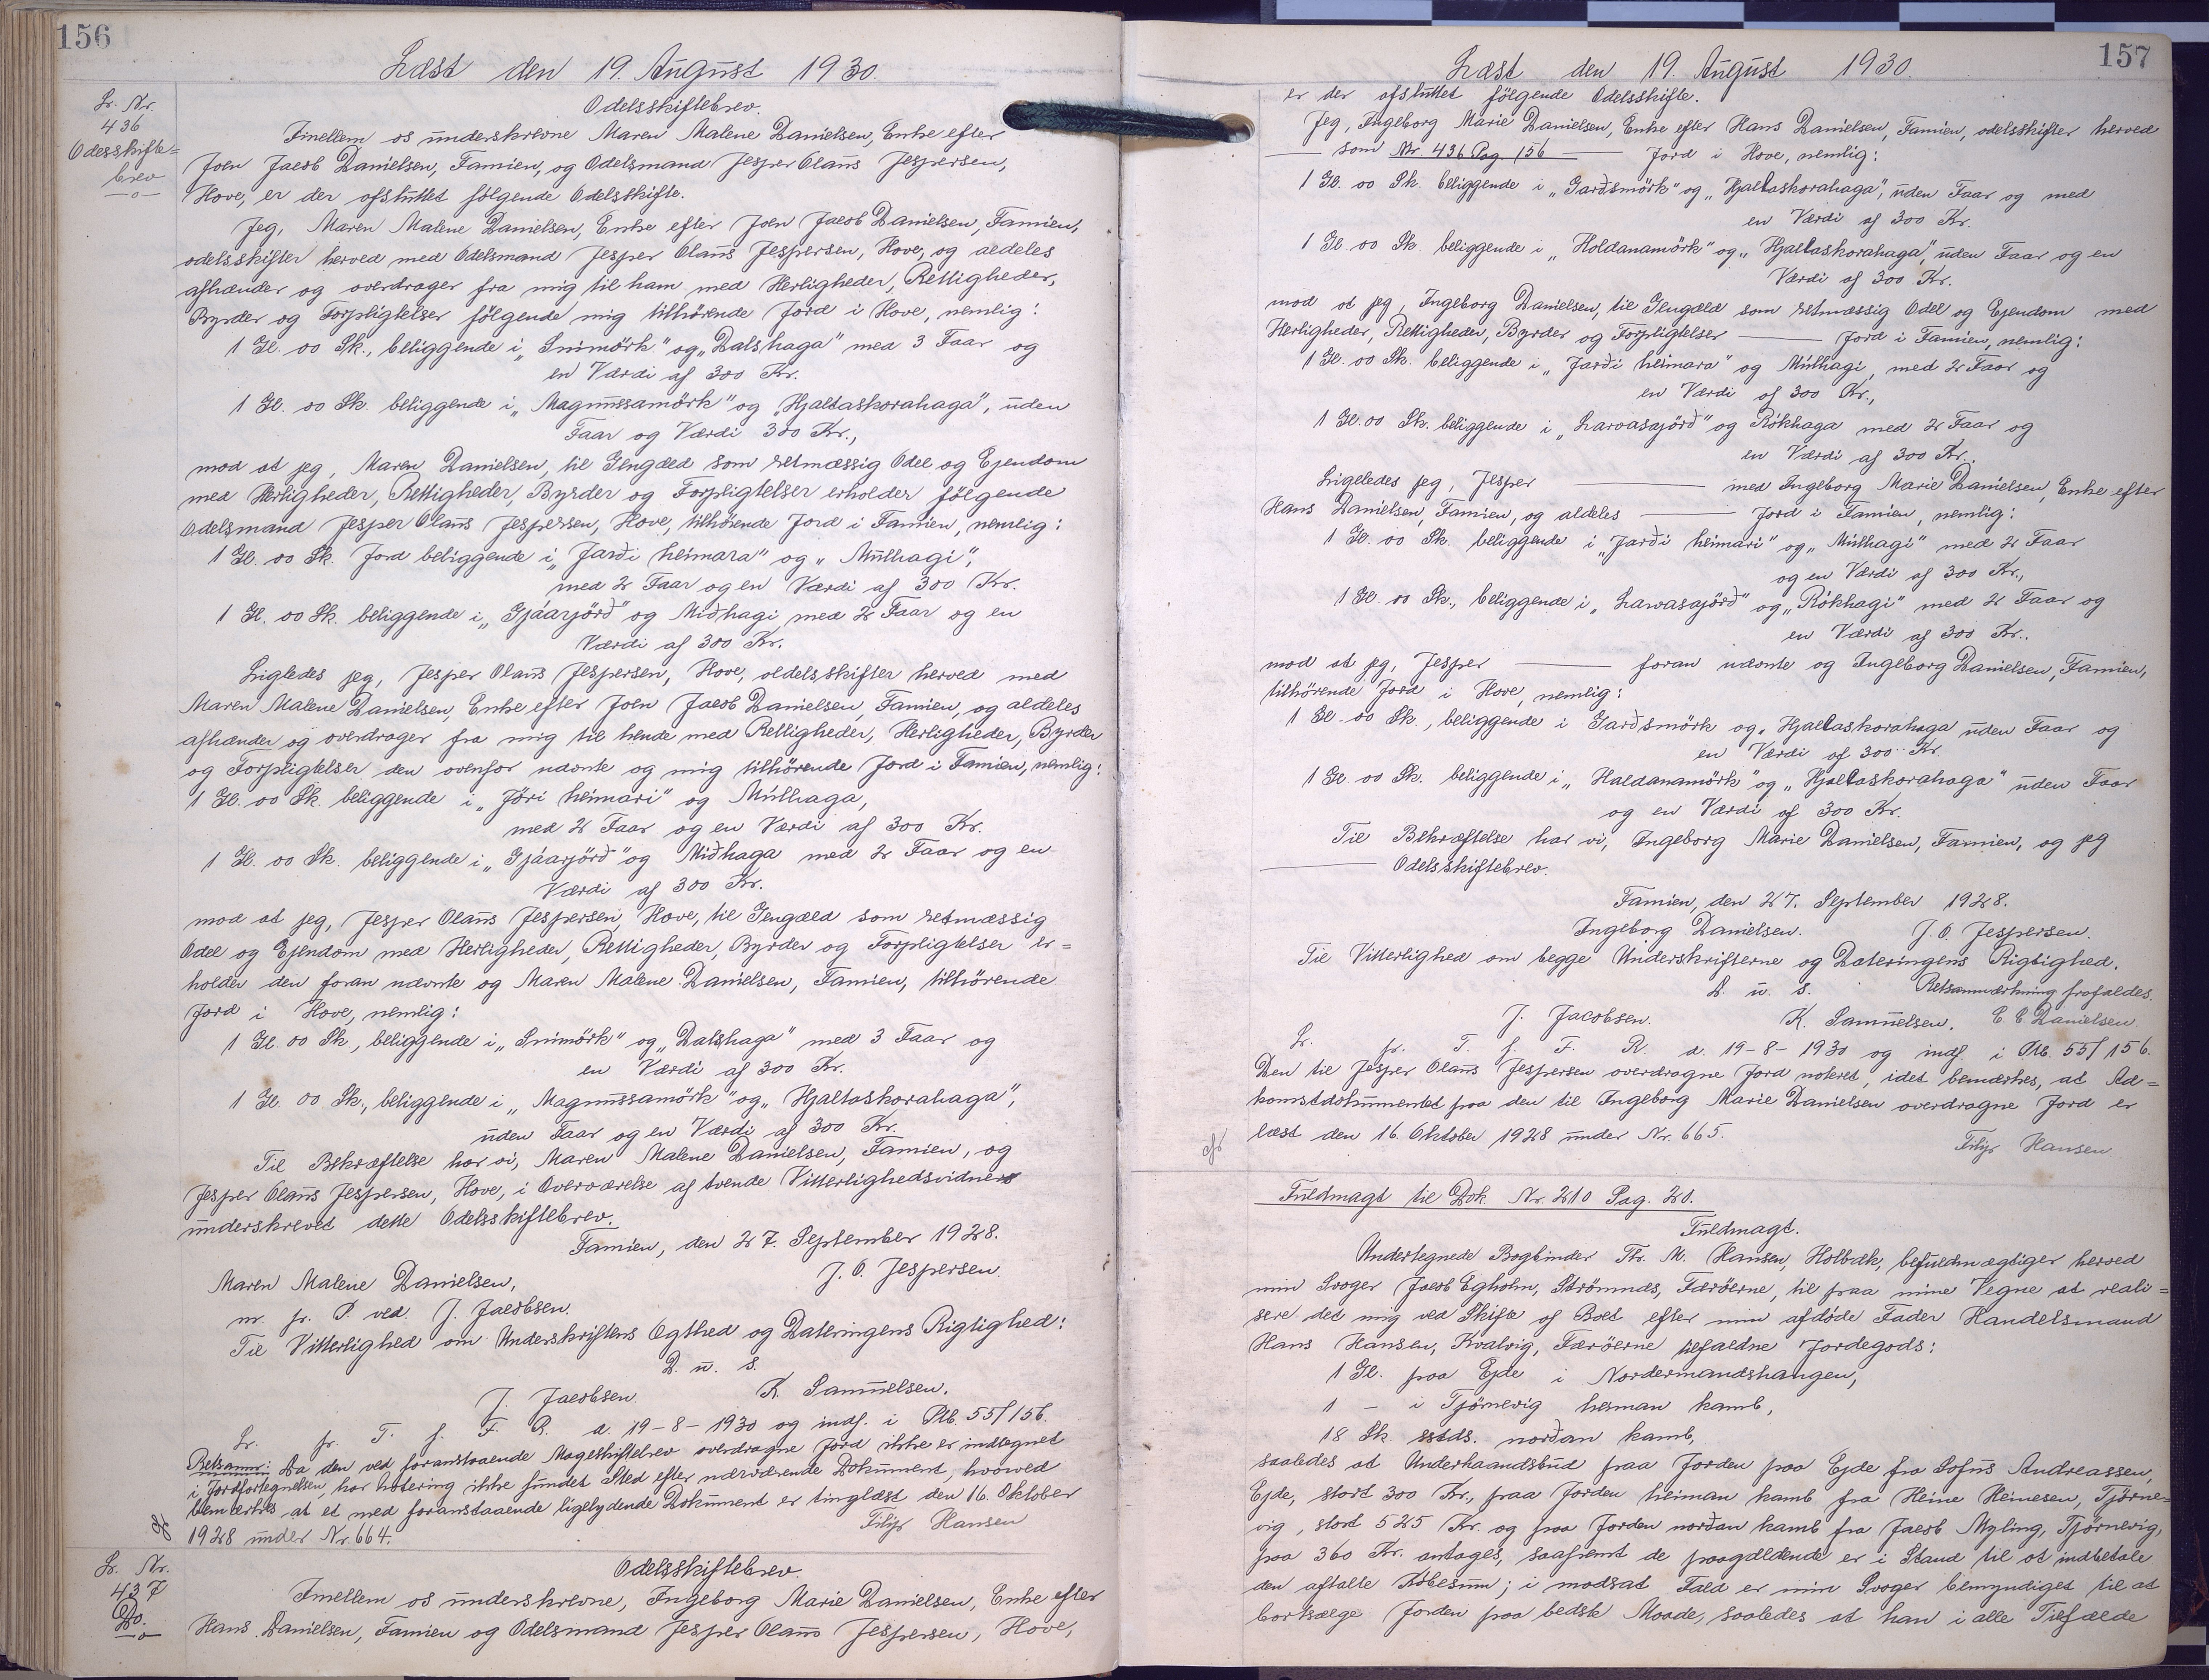 156
Læst den 19. August 1930.
Lr. Nr.
436
Odesskifte=
brev
Odelsskiftebrev.
Imellem os underskrevne Maren Malene Danielsen, Enke efter
Joen Jacob Danielsen, Famien, og Odelsmand Jesper Olaus Jespersen,
Hove, er der afsluttet følgende Odelskifte.
Jeg, Maren Malene Danielsen, Enke efter Joen Jacob Danielsen, Famien,
odelsskifter herved med Odelsmand Jesper Olaus Jespersen, Hove, og aldeles
afhænder og overdrager fra mig til ham med Herligheder, Rettigheder,
Byrder og Forpligtelser følgende mig tilhörende Jord i Hove, nemlig:
1 Gl. 00 Sk., beliggende i „Snimörk" og „Dalshaga" med 3 Faar og
en Værdi af 300 Kr.
1 Gl. 00 Sk. beliggende i „Magnussamörk" og „Hjaltaskorahaga", uden
Faar og Værdi 300 Kr.,
mod at jeg, Maren Danielsen, til Gengæld som retmæssig Odel og Ejendom
med Herligheder, Rettigheder, Byrder og Forpligtelser erholder følgende
Odelsmand Jesper Olaus Jespersen, Hove, tilhörende Jord i Famien, nemlig:
1 Gl. 00 Sk. Jord beliggende i „Jarði heimara" og „Múlhagi",
med 2 Faar og en Værdi af 300 Kr.
1 Gl. 00 Sk. beliggende i „Gjáarjörð" og Miðhagi med 2 Faar og en
Værdi af 300 Kr.
Ligledes jeg, Jesper Olaus Jespersen, Hove, oldelsskifter herved med
Maren Malene Danielsen, Enke efter Joen Jacob Danielsen, Famien, og aldeles
afhænder og overdrager fra mig til hende med Rettigheder, Herligheder, Byrder
og Forpligtelser den ovenfor nævnte og mig tilhörende Jord i Famien, nemlig:
1 Gl. 00 Sk. beliggende i „Jöri heimari" og Múlhaga,
med 2 Faar og en Værdi af 300 Kr.
1 Gl. 00 Sk. beliggende i „Gjáarjörð" og Miðhaga med 2 Faar og en
Værdi af 300 Kr.
mod at jeg, Jesper Olaus Jespersen, Hove, til Gengæld som retmæssig
Odel og Ejendom med Herligheder, Rettigheder, Byrder og Forpligtelser er=
holder den foran nævnte og Maren Malene Danielsen, Famien, tilhörende
Jord i Hove, nemlig:
1 Gl. 00 Sk., beliggende i „Snimörk" og „Dalshaga" med 3 Faar og
en Værdi af 300 Kr.
1 Gl. 00 Sk., beliggende i „Magnussamörk" og „Hjaltaskorahaga",
uden Faar og en Værdi af 300 Kr.
Til Bekræftelse har vi, Maren Malene Danielsen, Famien, og
Jesper Olaus Jespersen, Hove, i Overværelse af tvende Vitterlighedsvidner
underskrevet dette Odelsskiftebrev.
Famien, den 27. September 1928.
Maren Malene Danielsen, J. O. Jespersen.
m. f. P. ved J. Jacobsen.
Til Vitterlighed om Underskriftens Ægthed og Dateringens Rigtighed:
D. u. s.
J. Jacobsen. K. Samuelsen.
Lr. fr. T. f. F. R. d. 19-8-1930 og indf. i Ptb. 55/156.
Retsanm: Da den ved foranstaaende Mageskiftebrev overdragne Jord ikke er indtegnet
i Jordfortegnelsen, har Notering ikke fundet Sted efter nærværende Dokument, hvorved
bemærkes at et med foranstaaende ligelydende Dokument er tinglæst den 16. Oktober
1928 under Nr. 664. Filip Hansen
Lr. Nr.
437
Do.
Odelsskiftebrev.
Imellem os underskrevne, Ingeborg Marie Danielsen, Enke efter
Hans Danielsen, Famien og Odelsmand Jesper Olaus Jespersen, Hove,
157
Læst den 19. August 1930.
er der afsluttet følgende Odelsskifte.
Jeg, Ingeborg Marie Danielsen, Enke efter Hans Danielsen, Famien, odelsskifter herved
— som Nr. 436 Pag. 156 — Jord i Hove, nemlig:
1 Gl. 00 Sk. beliggende i „Garðsmörk" og „Hjaltaskorahaga", uden Faar og med
en Værdi af 300 Kr.
1 Gl. 00 Sk. beliggende i „Holdanamörk" og „Hjaltaskorahaga", uden Faar og en
Værdi af 300 Kr.
mod at jeg, Ingeborg Danielsen, til Gengæld som retmæssig Odel og Ejendom med
Herligheder, Rettigheder, Byrder og Forpligtelser — Jord i Famien, nemlig:
1 Gl. 00 Sk. beliggende i „Jarði heimara" og Múlhagi, med 2 Faar og
en Værdi af 300 Kr.,
1 Gl. 00 Sk. beliggende i „Larvasajörð" og Rókhaga med 2 Faar og
en Værdi af 300 Kr..
Ligeledes jeg, Jesper — med Ingeborg Marie Danielsen, Enke efter
Hans Danielsen, Famien, og aldeles — Jord i Famien, nemlig:
1 Gl. 00 Sk. beliggende i „Jarði heimari" og „Múlhagi" med 2 Faar
og en Værdi af 300 Kr.,
1 Gl. 00 Sk., beliggende i „Larvasajörð" og „Rókhagi" med 2 Faar og
en Værdi af 300 Kr..
mod at jeg, Jesper — foran nævnte og Ingeborg Danielsen, Famien,
tilhörende Jord i Hove, nemlig:
1 Gl. 00 Sk., beliggende i Garðsmörk og „Hjaltaskorahaga uden Faar og
en Værdi af 300 Kr.
1 Gl. 00 Sk. beliggende i „Haldanamörk" og „Hjaltaskorahaga" uden Faar
og en Værdi af 300 Kr.
Til Bekræftelse har vi, Ingeborg Marie Danielsen, Famien, og jeg
— Odelsskiftebrev.
Famien, den 27. September 1928.
Ingeborg Danielsen. J. O. Jespersen.
Til Vitterlighed om begge Underskrifterne og Dateringens Rigtighed.
D. u. s. Retsanmærkning frafaldes.
J. Jacobsen. K. Samuelsen. Danielsen.
Lr. fr. T. f. F. R. d. 19-8-1930 og indf. i Ptb. 55/156.
Den til Jesper Olaus Jespersen overdragne Jord noteret, idet bemærkes, at Ad=
komstdokumentet paa den til Ingeborg Marie Danielsen overdragne Jord er
læst den 16. Oktober 1928 under Nr. 665.
Filip Hansen
Fuldmagt til Dok. Nr. 210 Pag. 20.
Fuldmagt.
Undertegnede Bogbinder Th. M. Hansen, Holbæk, befuldmægtiger herved
min Svoger Jacob Egholm, Strömnæs, Færöerne, til paa mine Vegne at reali=
sere det mig ved Skifte af Boet efter min afdøde Fader Handelsmand
Hans Hansen, Kvalvig, Færöerne tilfaldne Jordegods:
1 Gl. paa Ejde i Nordermandshangen,
1 - i Tjörnevig heiman kamb,
18 Sk. sstds. norðan kamb,
saaledes at Underhaandsbud paa Jorden paa Ejde fra Sofus Andreassen,
Ejde, stort 300 Kr., paa Jorden heiman kamb fra Heine Heinesen, Tjörne=
vig, stort 525 Kr. og paa Jorden norðan kamb fra Jacob Myling, Tjörnevig,
paa 360 Kr. antages, saafremt de paagældende er i Stand til at indbetale
den aftalte Købesum; i modsat Fald er min Svoger bemyndiget til at
bortsælge Jorden paa bedste Maade, saaledes at han i alle Tilfælde